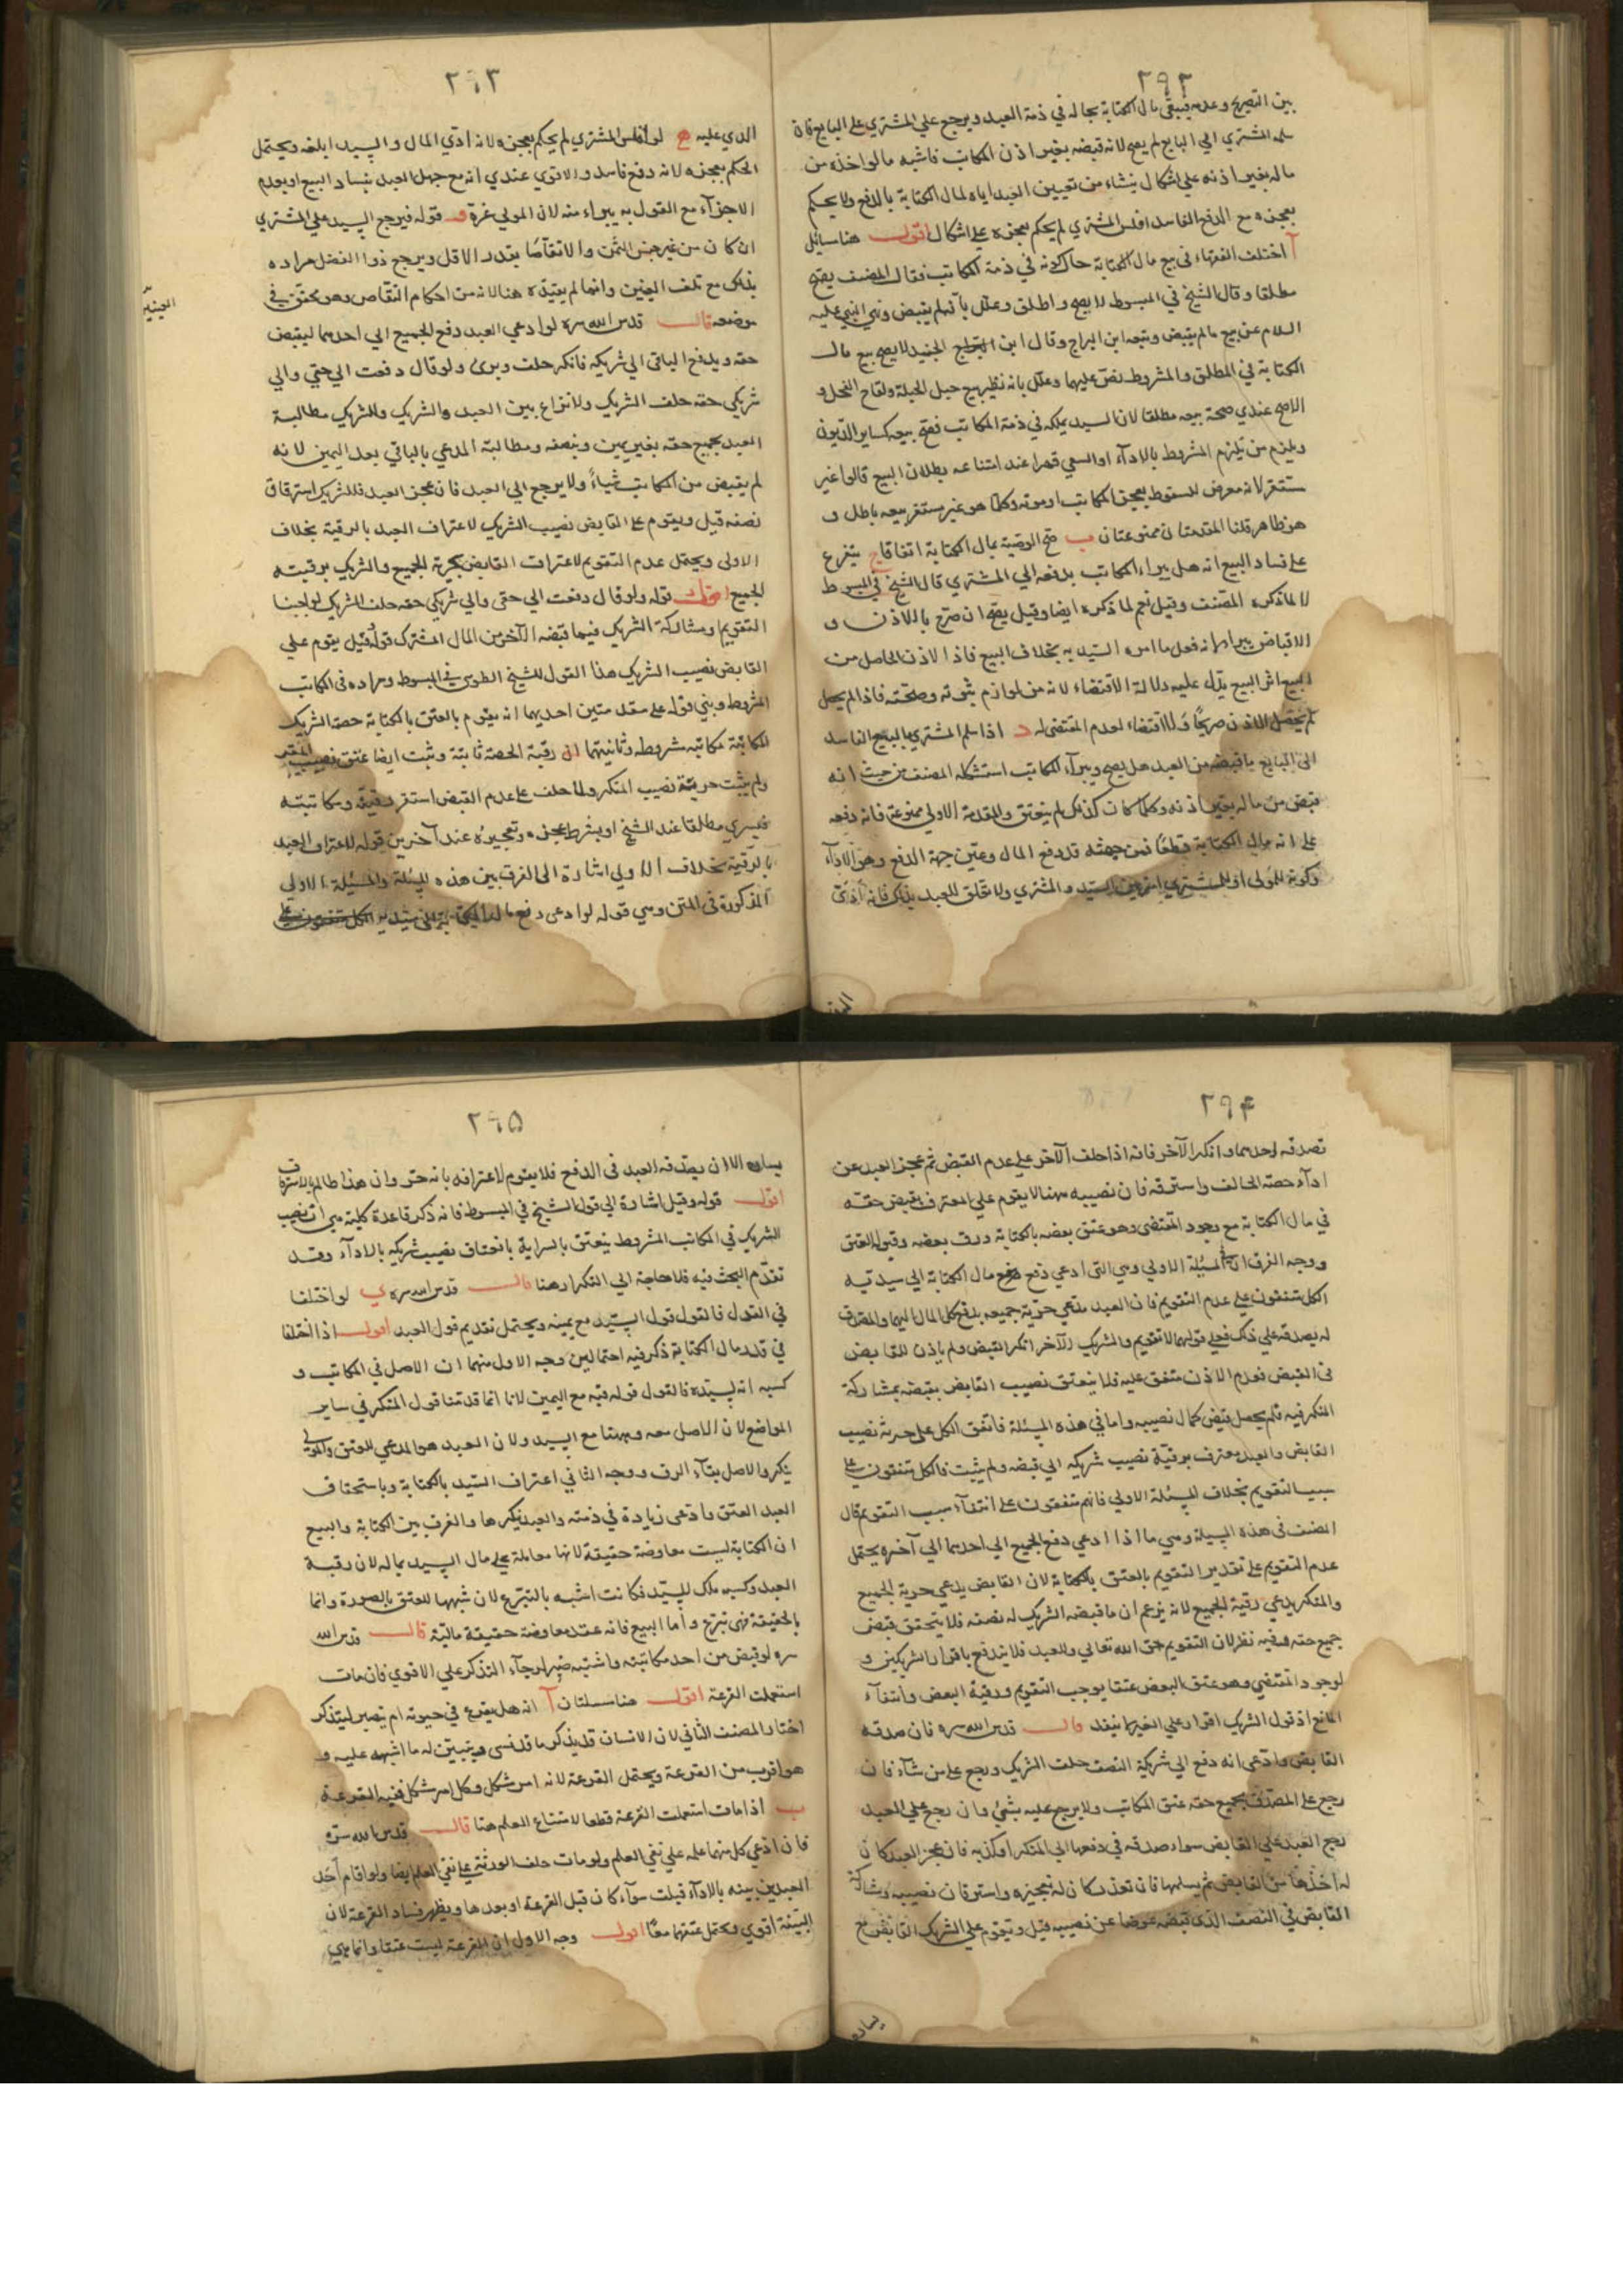 ٢٩٢
بين التصريح وعدمه فيبقى مال الكتابة بحاله في ذمة العبد ويرجع علي المشتري علي البايع فان
سلمه المشتري الي البايع لم يصح لانه قبضه بغير اذن المكاتب فاشبه ما لو اخذه من
ماله بغير اذنه علي اشكال ينشاء من تعيين العبد اياه لمال الكتابة بالدفع ولا يحكم
بعجزه مع الدفع الفاسد افلس المشتري لم يحكم بعجزه علي اشكال اقول هنا مسائل
آ اختلف الفقهاء في بيع مال الكتابة حال كونه في ذمة المكاتب فقال المصنف يصح
مطلقا وقال الشيخ في المبسوط لا يصح واطلق وعلل بانه لم يقبض ونهي النبي عليه
السلام عن بيع ما لم يقبض وتبعه ابن البراج وقال ابن الجنيد لا يصح بيع مال
الكتابة في المطلق والمشروط نص عليهما وعلل بانه نظير بيع حبل الحبلة ولقاح الفحل و
الاصح عندي صحة بيعه مطلقا لان السيد يملكه في ذمة المكاتب فصح بيعه كساير الديون
ويلزم من يلزم المشروط بالاداء او السعي قهرا عند امتناعه بطلان البيع قالوا غير
مستقر لانه معرض للسقوط بعجز المكاتب او موته وكلما هو غير مستقر بيعه باطل و
هو ظاهر قلنا المقدمتان ممنوعتان ب صح الوصية بمال الكتابة اتفاقا ج يتفرع
علي فساد البيع انه هل يبراء المكاتب بدفعه الي المشتري قال الشيخ في المبسوط
لا لما ذكره المصنف وقيل نعم لما ذكره ايضا وقيل يصح ان صرح بالاذن و
الاقباض يبراء لانه فعل ما امره السيد به بخلاف البيع فاذا الاذن الحاصل من
البيع اثر البيع يدل عليه دلالة الاقتضاء لانه من لوازم ثبوته وصحته فاذا لم يحصل
لم يحصل الاذن صريحا ولا اقتضاء لعدم المقتضي له د اذا سلم المشتري بالبيع الفاسد
الي البايع ما قبضه من العبد هل يصح ويبراء المكاتب استشكله المصنف من حيث انه
قبض من ماله بغير اذنه وكلما كان كذلك لم ينعتق والمقدمة الاولي ممنوعة فانه دفعه
علي انه مال الكتابة قطعا فمن حيث قد دفع المال وعين جهة الدفع وهو الاداء
وكونه للمولي او للمشتري امر بين السيد والمشتري ولا تعلق للعبد بذلك فانه ادي
٢٩٣
الذي عليه ه لو افلس المشتري لم يحكم بعجزه لانه ادي المال والسيد ابلغه ويحتمل
الحكم بعجزه لانه دفع فاسد والاقوي عندي انه مع جهل العبد بفساد البيع او بعدم
الاجزاء مع القول به يبراء منه لان المولي غره و قوله فيرجع السيد علي المشتري
ان كان من غير جنس الثمن والا تقاصا بقدر الاقل ويرجع ذوا الفضل مراده
بذلك مع تلف العينين وانما لم يقيده هنا لانه من احكام التقاص وهو محقق في
موضعه قال قدس الله سره لو ادعي العبد دفع الجميع الي احدهما ليقبض
حقه ويدفع الباقي الي شريكه فانكر حلف وبرئ ولو قال دفعت الي حقي والي
شريكي حقه حلف الشريك ولا نزاع بين العبد والشريك وللشريك مطالبة
العبد بجميع حقه بغير يمين وبنصفه ومطالبة المدعي بالباقي بعد اليمين لانه
لم يقبض من المكاتب شياء ولا يرجع الي العبد فان عجز العبد فللشريك استرقاق
نصفه قيل ويقوم علي القابض نصيب الشريك لاعتراف العبد بالرقية بخلاف
الاولي ويحتمل عدم التقويم لاعتراف القابض بحرية الجميع والشريك برقيته
الجميع اقول قوله ولو قال دفعت الي حقي والي شريكي حقه حلف الشريك لو اجبنا
التقويم ومشاركة الشريك فيما قبضه الآخر من المال المشترك قوله قيل يقوم علي
القابض نصيب الشريك هذا القول للشيخ الطوسي في المبسوط ومراده في المكاتب
المشروط وبني قوله علي مقدمتين احديهما انه يقوم بالعتق بالكتابة حصة الشريك
المكاتبة مكاتبه مشروطه وثانيتهما ان رقبة الحصة ثابتة وثبت ايضا عتق نصيب المقر
ولم يثبت حرية نصيب المنكر ولما حلف علي عدم القبض استقر رقيته ومكاتبته
فيسري مطلقا عند الشيخ او بشرط عجزه وتعجيزه عند آخرين قوله لاعتراف العبد
بالرقية بخلاف الاولي اشارة الي الفرق بين هذه المسئلة والمسئلة الاولي
المذكورة في المتن وهي قوله لو ادعي دفع مال الكتابة الي سيديه
الجنيد
٢٩۴
تصدقه احدهما وانكر الآخر فانه اذا حلف الآخر علي عدم القبض ثم عجز العبد عن
اداء حصة الحالف واسترقه فان نصيبه ههنا لا يقوم علي المعترف بقبض حقه
في مال الكتابة مع وجود المقتضي وهو عتق بعضه بالكتابة ورق بعضه وقبوله العتق
ووجه الفرق ان في المسئلة الاولي وهي التي ادعي دفع مال الكتابة الي سيديه
الكل متفقون علي عدم التقويم فان العبد مدعي حرية جميعه بدفع كل المال اليهما والمصدق
له يصدقه علي ذلك فعلي قولهما لا تقويم والشريك الآخر انكر القبض ولم ياذن للقابض
في القبض فعدم الاذن متفق عليه فلا ينعتق نصيب القابض بقبضه بمشاركة
المنكر فيه فلم يحصل قبض كمال نصيبه واما في هذه المسئلة فاتفق الكل علي حرية نصيب
القابض والعبد معترف برقية نصيب شريكه الي قبضه ولم يثبت فالكل متفقون علي
سبب التقويم بخلاف المسئلة الاولي فانهم متفقون علي انتفاء سبب التقويم قال
المصنف في هذه المسئلة وهي ما اذا ادعي دفع الجميع الي احدهما الي آخره يحتمل
عدم التقويم علي تقدير التقويم بالعتق بالكتابة لان القابض يدعي حرية الجميع
والمنكر يدعي رقية الجميع لانه يزعم ان ما قبضه الشريك له نصفه فلا يتحقق قبض
جميع حقه وفيه نظر لان التقويم حق الله تعالي وللعبد فلا يندفع باقرار الشريكين و
لوجود المقتضي وهو عتق البعض عتقا يوجب التقويم ورقية البعض وانتفاء
المانع اذ قول الشريك اقرار علي الغير لا ينفذ قال قدس الله سره فان صدقه
القابض وادعي انه دفع الي شريكه النصف حلف الشريك ورجع علي من شاء فان
رجع علي المصدق بجميع حقه عتق المكاتب ولا يرجع عليه بشئ وان رجع علي العبد
رجع العبد علي القابض سواء صدقه في دفعها الي المنكر او كذبه فان عجز العبد كان
له اخذها من القابض ثم يسلمها فان تعذر كان له تعجيزه واسترقاق نصيبه ومشاركة
القابض في النصف الذي قبضه عوضا عن نصيبه قيل ويقوم علي الشريك القابض مع
يساره
٢٩۵
يساره الا ان يصدقه العبد في الدفع فلا يقوم لاعترافه بانه حر وان هذا ظالم بالاسترقاق
اقول قوله وقيل اشارة الي قول الشيخ في المبسوط فانه ذكر قاعدة كلية هي ان نصيب
الشريك في المكاتب المشروط ينعتق بالسراية بانعتاق نصيب شريكه بالاداء وقد
تقدم البحث فيه فلا حاجة الي التكرار هنا قال قدس الله سره ي لو اختلفا
في القول فالقول قول السيد مع يمينه ويحتمل تقديم قول العبد اقول اذا اختلفا
في قدر مال الكتابة ذكر فيه احتمالين وجه الاول منهما ان الاصل في المكاتب و
كسبه انه لسيده فالقول قوله فيه مع اليمين لانا انما قدمنا قول المنكر في ساير
المواضع لان الاصل معه وههنا مع السيد ولان العبد هو المدعي للعتق والمولي
ينكر والاصل بقاء الرق ووجه الثاني اعتراف السيد بالكتابة وباستحقاق
العبد العتق وادعي زيادة في ذمته والعبد ينكرها والفرق بين الكتابة والبيع
ان الكتابة ليست معاوضة حقيقة لانها معاملة علي مال السيد بماله لان رقبة
العبد وكسبه ملك للسيد فكانت اشبه بالتبرع لان شبهها للعتق بالصورة وانما
بالحقيقة فهي تبرع واما البيع فانه عقد معاوضة حقيقة مالية قال قدس الله
سره لو قبض من احد مكاتبيه واشتبه صبر لرجاء التذكر علي الاقوي فان مات
استعملت القرعة اقول هنا مسئلتان آ انه هل يقرع في حيوته ام يصبر ليتذكر
اختار المصنف الثاني لان الانسان قد يذكر ما قد نسي ويتبين له ما اشبهه عليه و
هو اقرب من القرعة ويحتمل القرعة لانه امر مشكل وكل امر مشكل فيه القرعة
ب اذا مات استعملت القرعة قطعا لامتناع العلم هنا قال قدس الله سره
فان ادعي كل منهما علمه علي نفي العلم ولو مات حلف الورثة علي نفي العلم ايضا ولو اقام احد
العبدين بينه بالاداء قبلت سواء كان قبل القرعة او بعدها ويظهر فساد القرعة لان
البينة اقوي ويحتمل عتقهما معا اقول وجه الاول ان القرعة ليست عتقا وانما هي